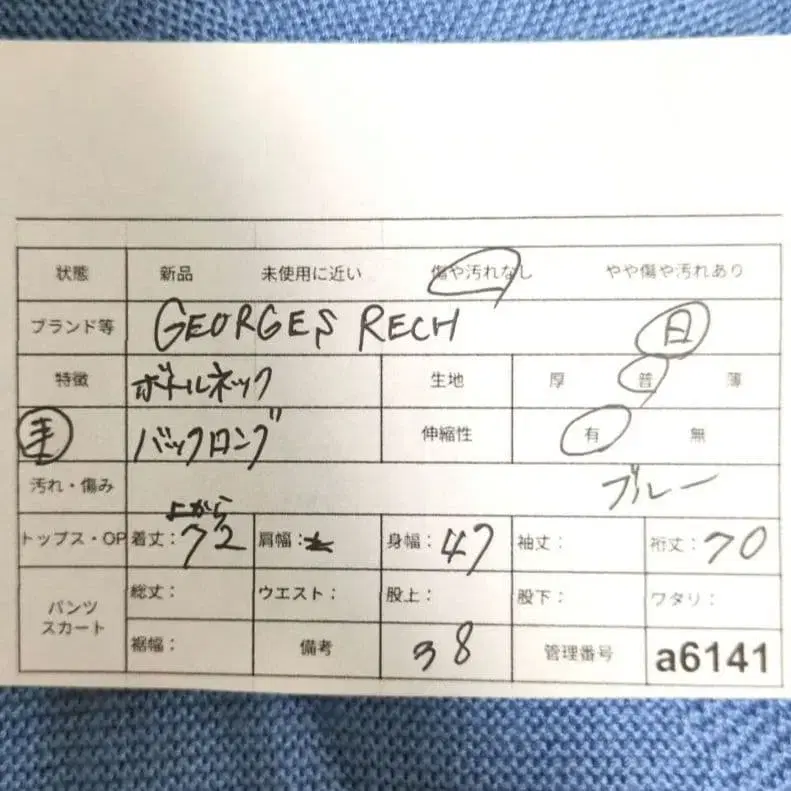 状態 新品 未使用に近い 傷や汚れなし やや傷や汚れあり
ブランド等 GEORGES RECH 日
特徴 ボトルネック 生地 厚 普 薄
バックロング 伸縮性 有 無
汚れ・傷み ブルー
よから
トップス・OP 着丈：72 肩幅： 身幅：47 袖丈： 裄丈：70
パンツ スカート 総丈： ウエスト： 股上： 股下： ワタリ：
裾幅： 備考 38 管理番号 a6141